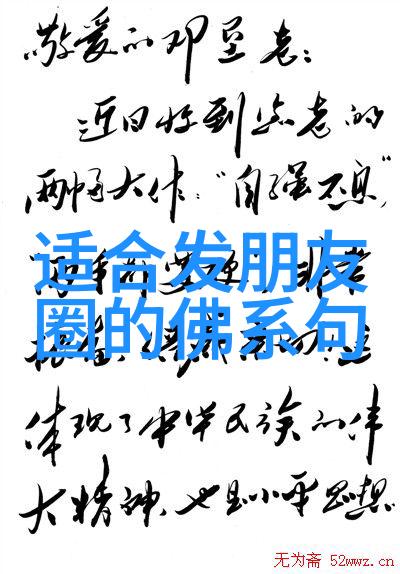 敬爱的邓垦老：
近日收到您老的
两幅大作："自强不息"，
适合发朋友
圈的佛系句
体现了中华民族的伟
大精神，也是小平思想
无为斋 52wwz.cn